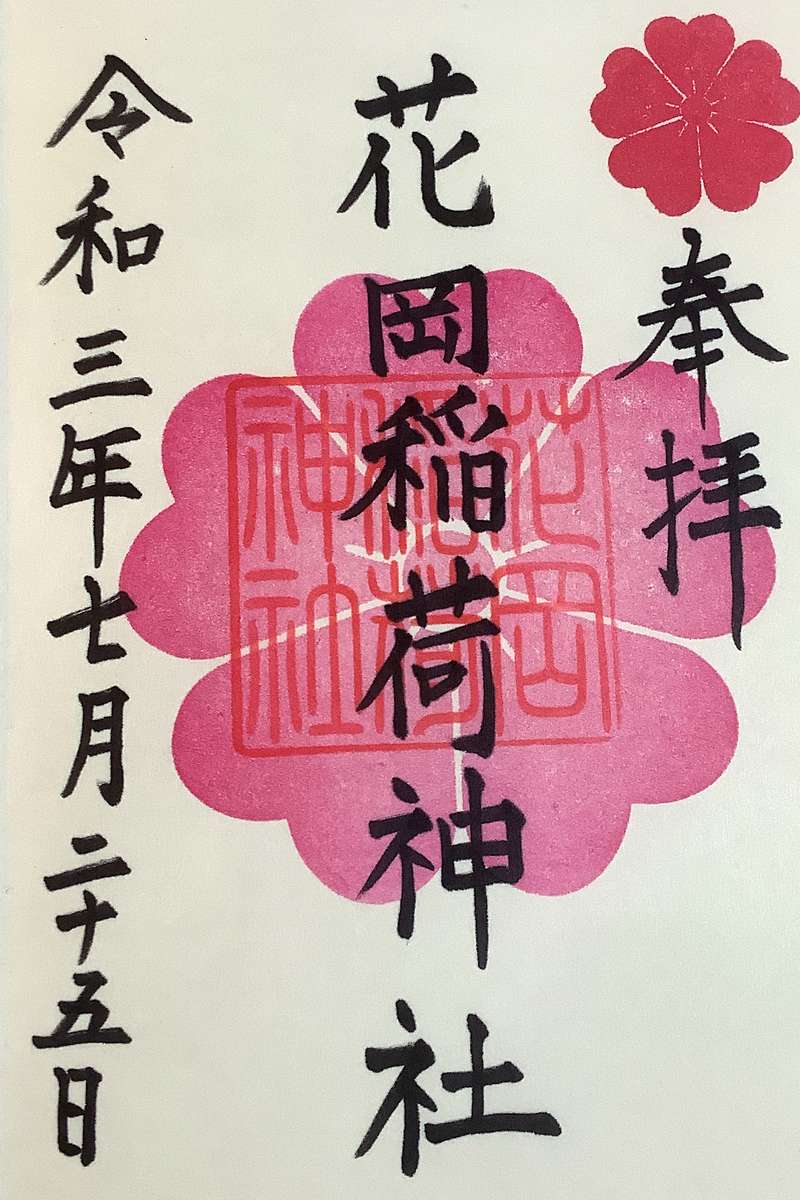 奉拝
花岡稲荷神社
花岡
稲荷
神社
令和三年七月二十五日